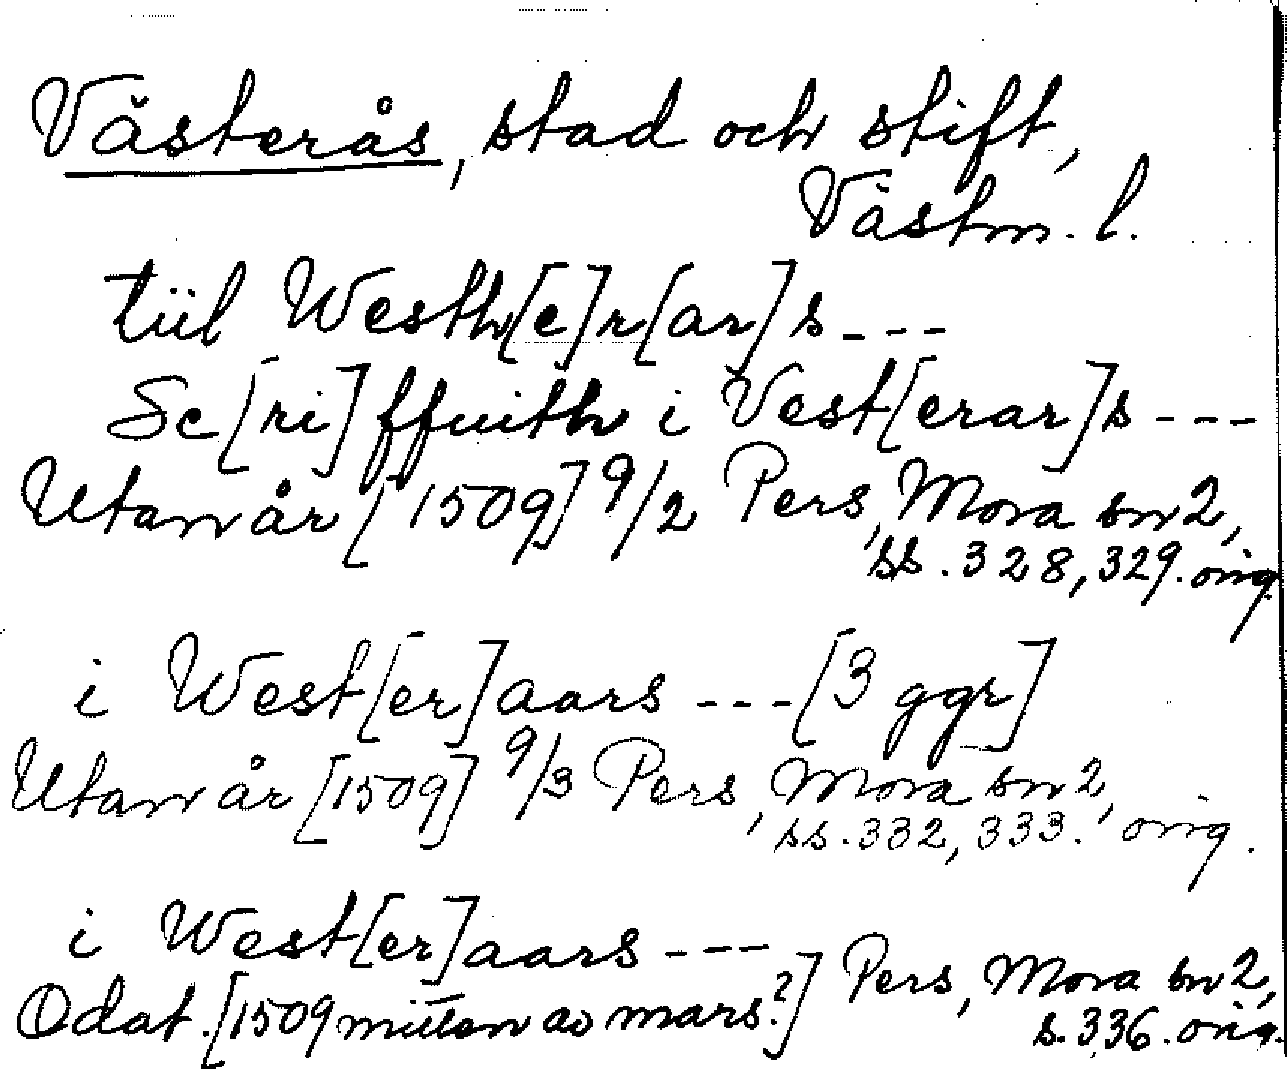 Västerås, stad och stift,
Västm. l.
tiil Westh[e]r[ar]s ---
Sc[ri]ffuith i Vest[erar]s ---
Utan år [1509] 9/2 Pers, Mora sn 2,
ss. 328, 329. orig.
i West[er]aars --- [3 ggr]
Utan år [1509] 9/3 Pers, Mora sn 2,
ss. 332, 333. orig.
i West[er]aars ---
Odat. [1509 mitten av mars?] Pers, Mora sn 2,
s. 336. orig.